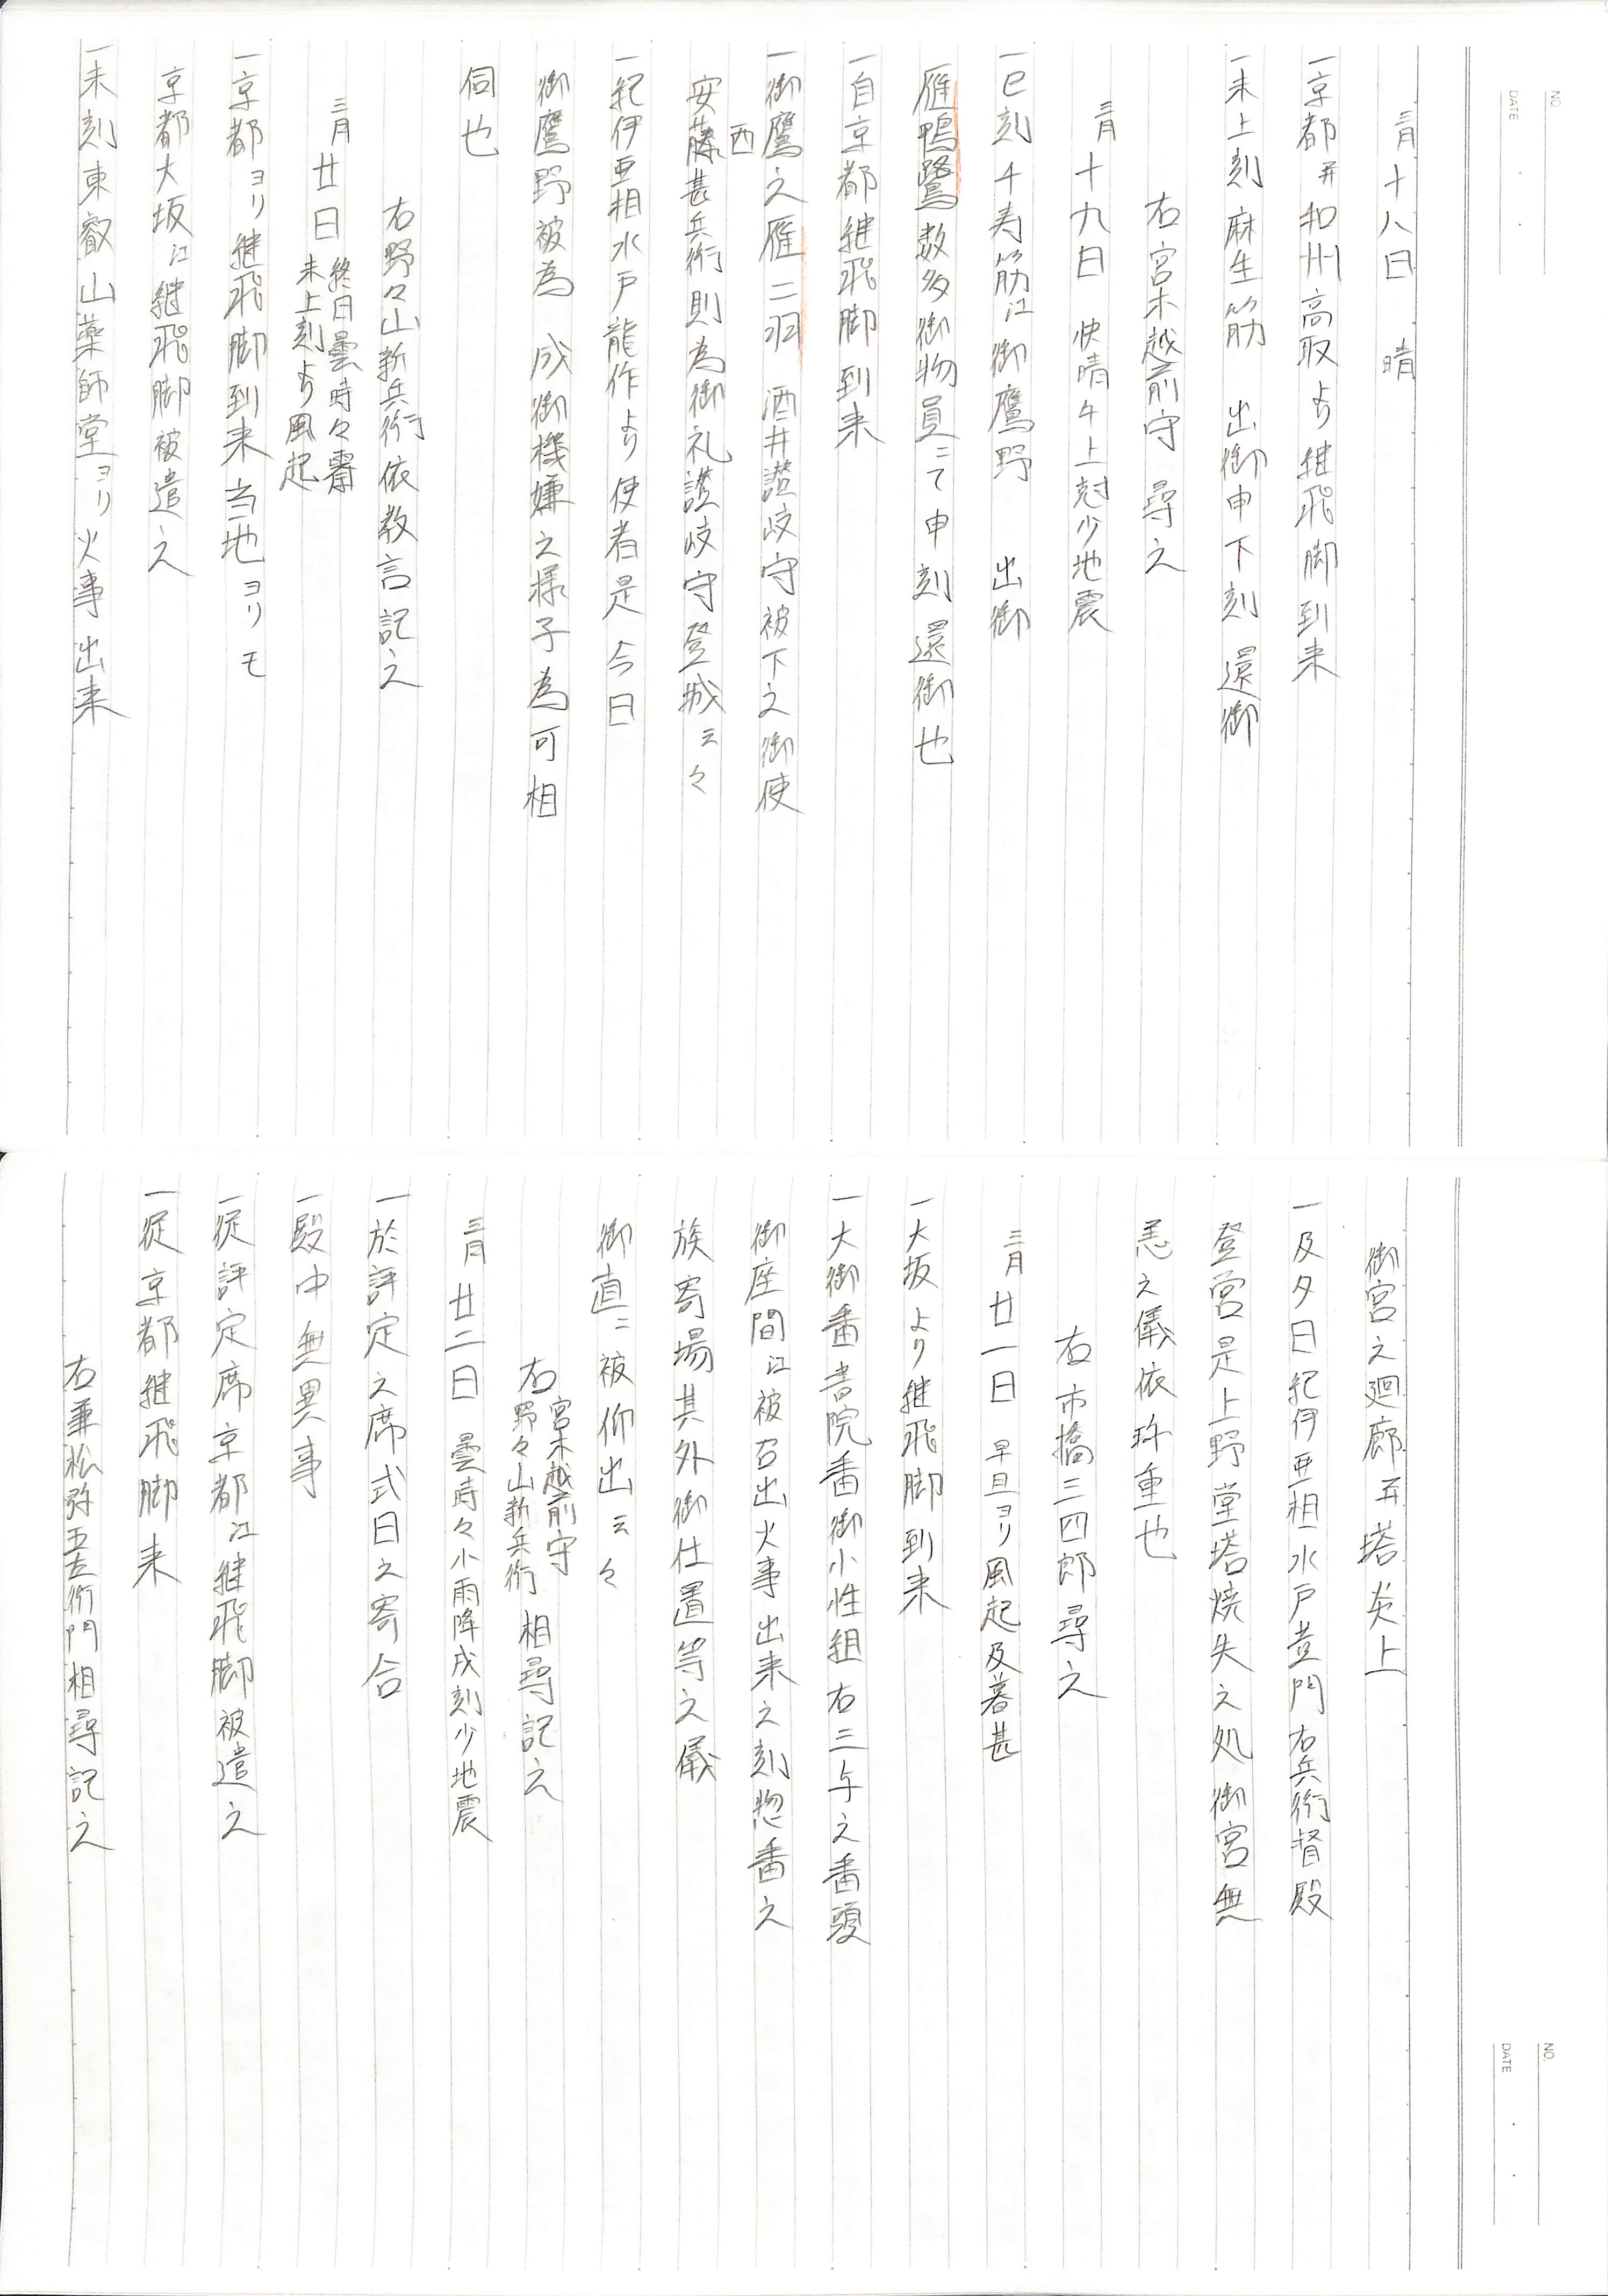 NO.
DATE
三月十八日 晴
一京都并和州高取より継飛脚到来
一未上刻麻生筋 出御申下刻 還御
右宮木越前守 尋之
三月十九日 快晴午上刻少地震
一巳刻千寿筋江御鷹野 出御
雁鴨鷺数多御物員ニて申刻 還御也
一自京都継飛脚到来
一御鷹之雁二羽 酒井讃岐守被下之御使
西
安藤甚兵衛則為御礼讃岐守登城云々
一紀伊亜相水戸龍作より使者是今日
御鷹野被為 成御機嫌之様子為可相
伺也
右野々山新兵衛依教言記之
三月廿日 終日曇時々霽
未上刻より風起
一京都ヨリ継飛脚到来当地ヨリモ
京都大坂江継飛脚被遣之
一未刻東叡山薬師堂ヨリ火事出来
NO.
DATE
御宮之廻廊并塔炎上
一及夕日紀伊亜相水戸黄門右兵衛督殿
登営是上野堂塔焼失之処御宮無
恙之儀依珎重也
右市橋三四郎尋之
三月廿一日 早旦ヨリ風起及暮甚
一大坂より継飛脚到来
一大御番書院番御小性組右三与之番頭
御座間江被召出火事出来之刻惣番之
族寄場其外御仕置等之儀
御直ニ被仰出云々
右 宮木越前守
野々山新兵衛 相尋記之
三月廿二日 曇時々小雨降戌刻少地震
一於評定之席式日之寄合
一殿中無異事
一従評定席京都江継飛脚被遣之
一従京都継飛脚来
右兼松弥五左衛門相尋記之